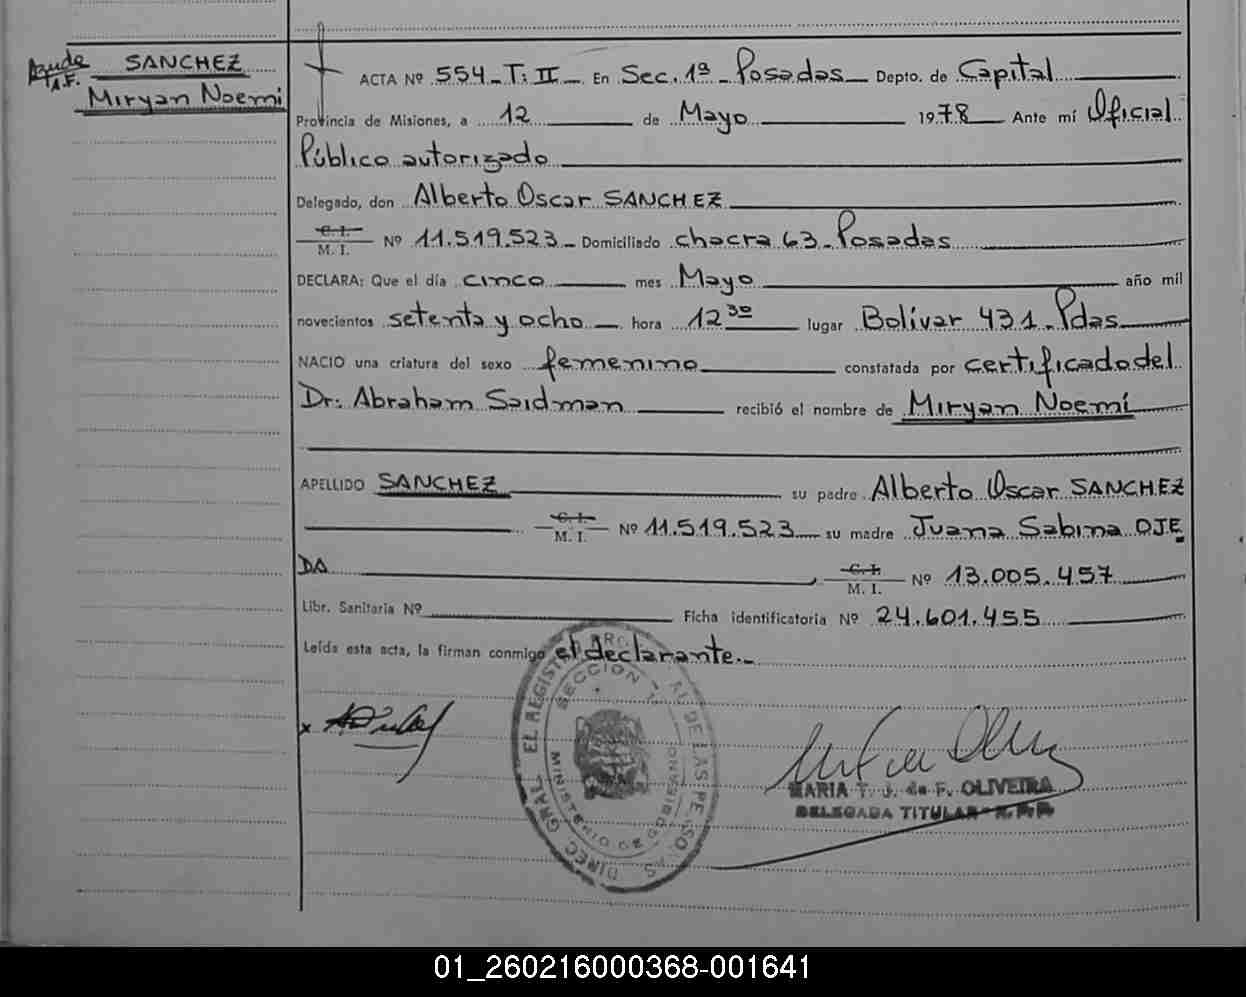 SANCHEZ
Miryan Noemi
ACTA Nº 554 - T: II - En Sec. 1ª - Posadas - Depto. de Capital
Provincia de Misiones, a 12 de Mayo 1978 Ante mí Oficial
Público autorizado
Delegado, don Alberto Oscar SANCHEZ
C. I.
M. I. Nº 11.519.523 - Domiciliado chacra 63 - Posadas
DECLARA: Que el día cinco mes Mayo año mil
novecientos setenta y ocho hora 12³⁰ lugar Bolívar 431 - Pdas
NACIO una criatura del sexo femenino constatada por certificado del
Dr: Abraham Saidman recibió el nombre de Miryan Noemí
APELLIDO SANCHEZ su padre Alberto Oscar SANCHEZ
C. I.
M. I. Nº 11.519.523 su madre Juana Sabina OJE
DA C. I.
M. I. Nº 13.005.457
Libr. Sanitaria Nº Ficha identificatoria Nº 24.601.455
Leída esta acta, la firman conmigo el declarante.-
SECCION 1ª
MINISTERIO DE GOBIERNO
MARIA T. J. de F. OLIVEIRA
DELEGADA TITULAR
01_260216000368-001641